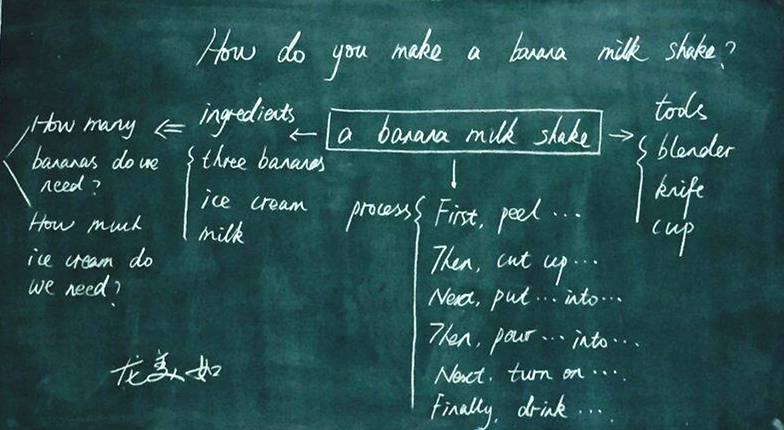 How do you make a banana milk shake?
How many
bananas do we
need?
How much
ice cream do
we need?
ingredients
three bananas
ice cream
milk
a banana milk shake
process
First, peel ...
Then, cut up ...
Next, put ... into ...
Then, pour ... into ...
Next, turn on ....
Finally, drink ...
tools
blender
knife
cup
龙美如